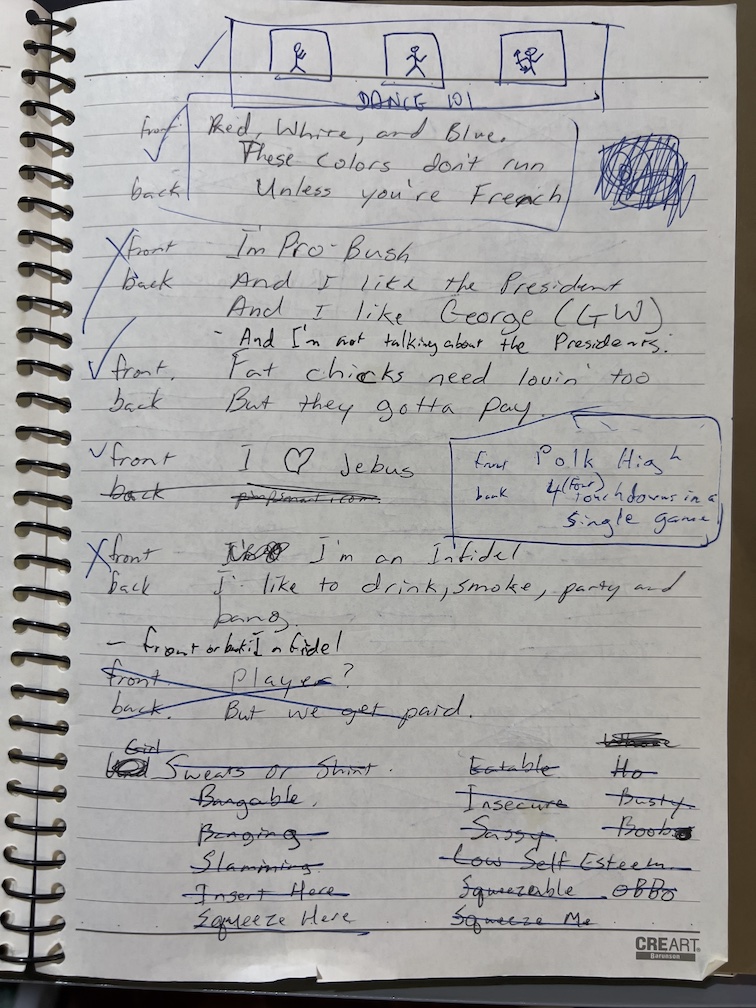 DANCE 101
front Red, White, and Blue.
These colors don't run
back Unless you're French
front I'm Pro-Bush
back And I like the President
And I like George (GW)
- And I'm not talking about the Presidents.
front. Fat chicks need lovin' too
back But they gotta pay.
front I ♡ Jebus
back pimpsmart.com
front Polk High
back 4 (Four) Touchdowns in a
single game
front I'm an Infidel
back I like to drink, smoke, party and
bang.
- front or back: Infidel
front. Player?
back. But we get paid.
Girl
Sweats or Shirt.
Bangable.
Banging
Slamming
Insert Here
Squeeze Here
Eatable
Insecure
Sassy
Low Self Esteem
Squeezable
Squeeze Me
Whore
Ho
Busty
Boobs
OBBO
CREART®
Barunson